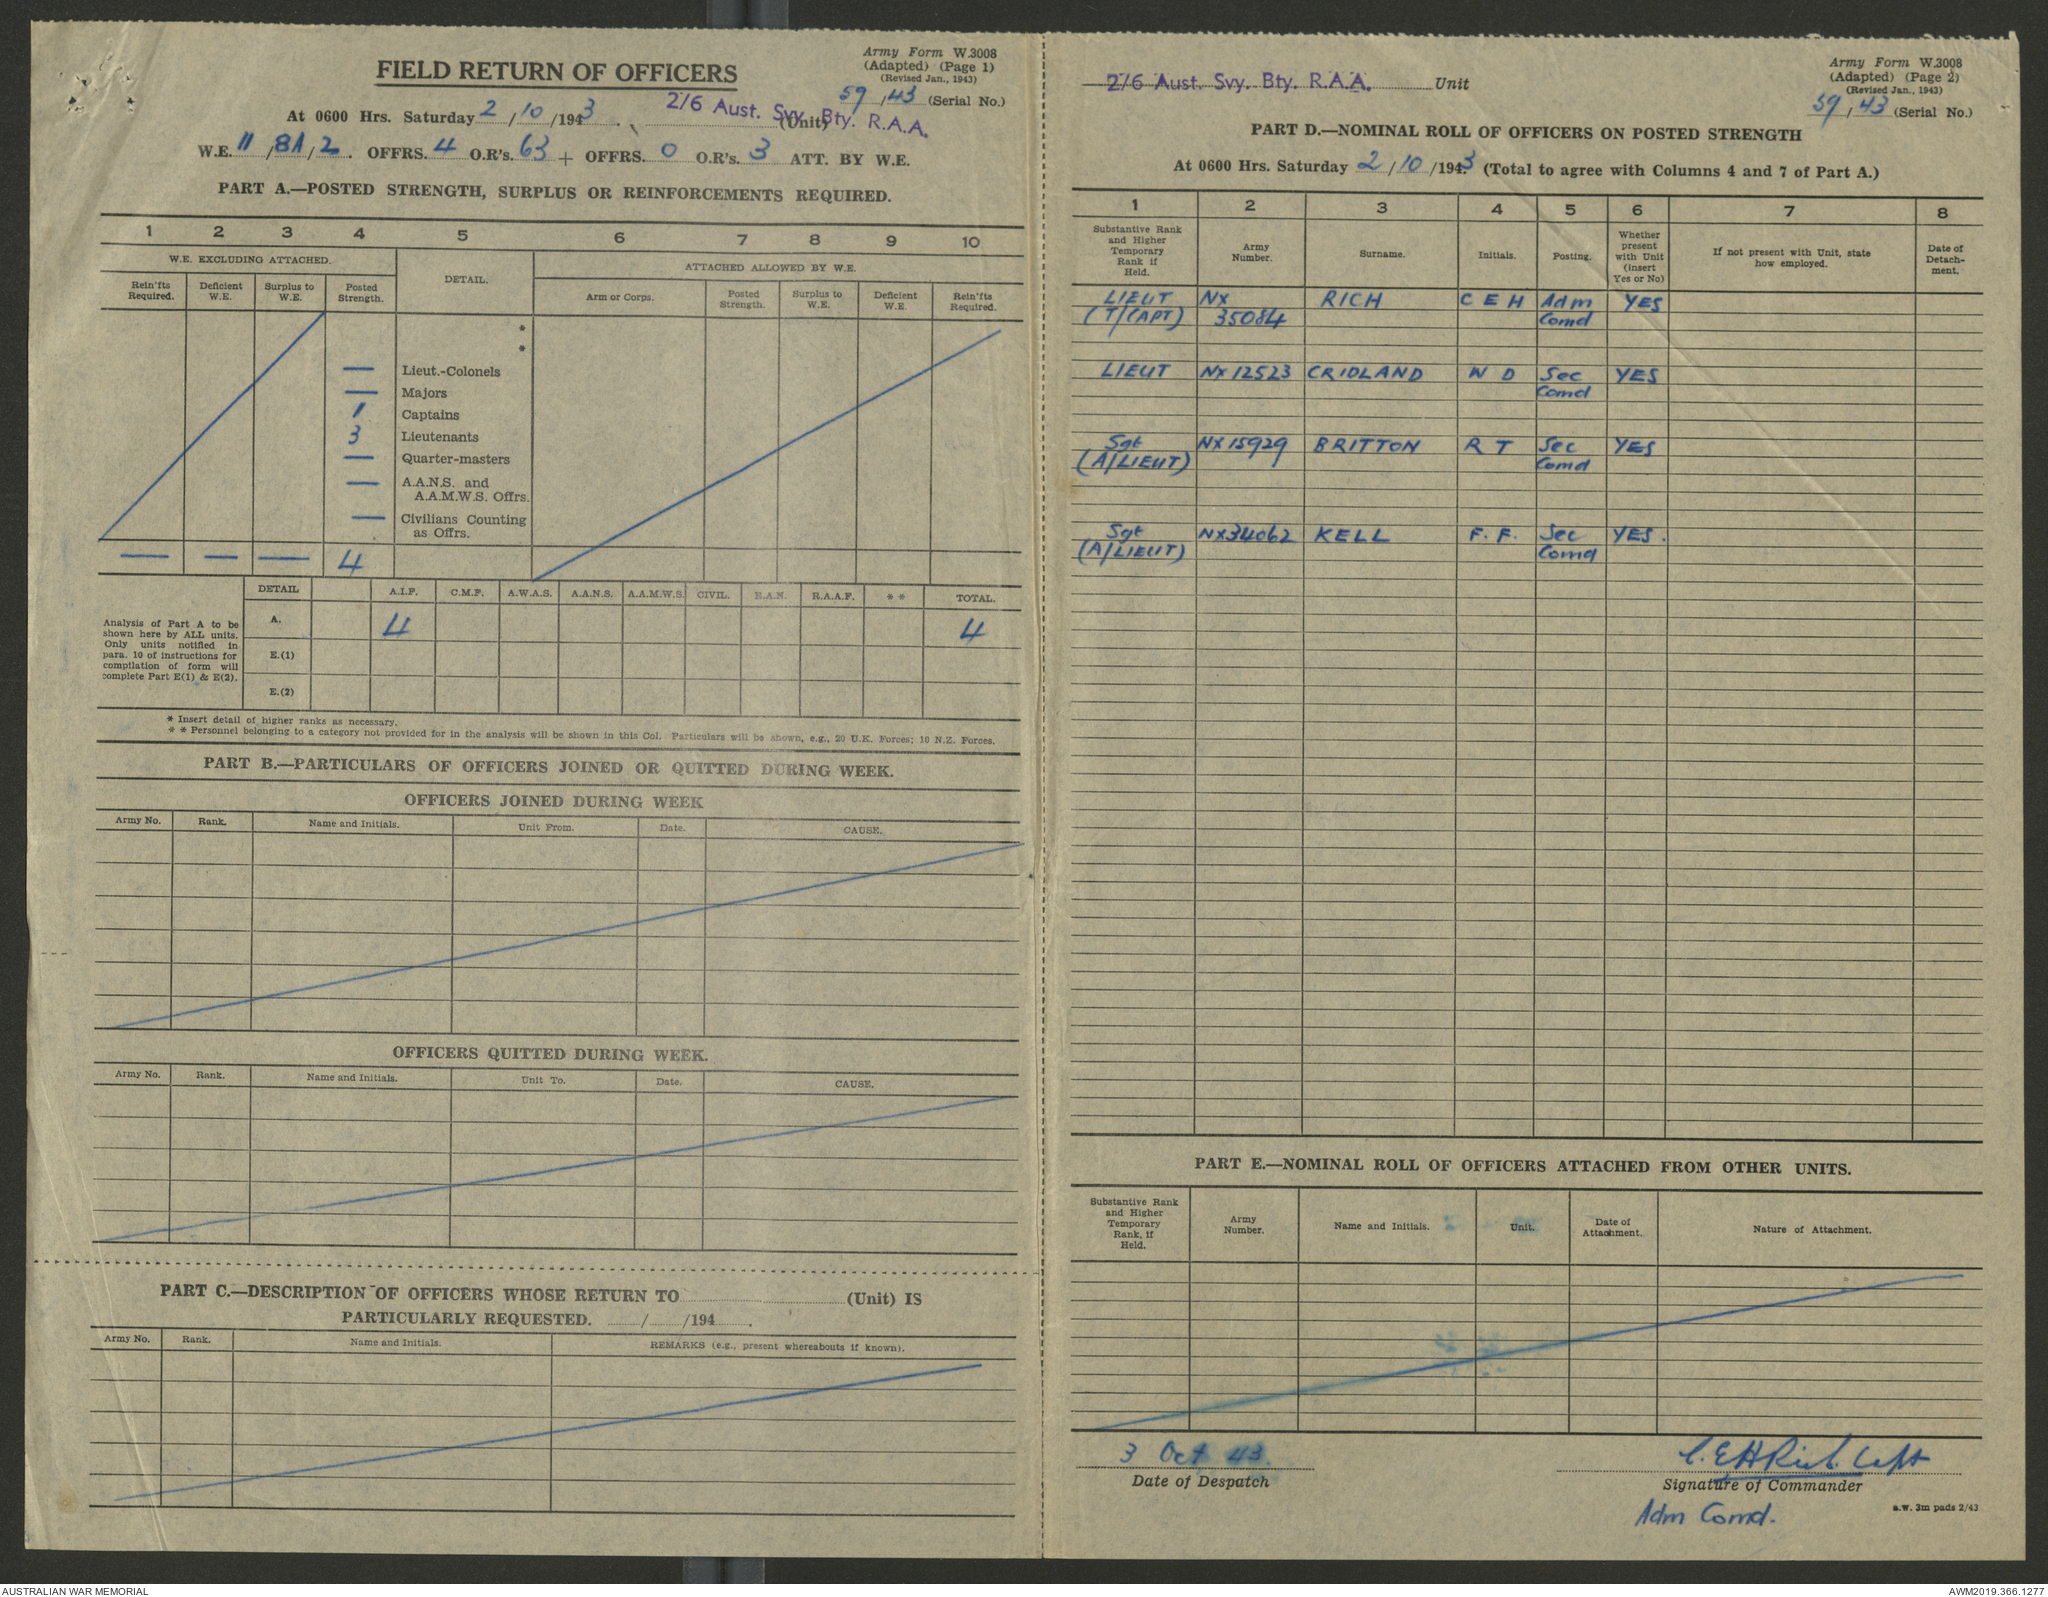 Army Form W.3008
(Adapted) (Page 1)
(Revised Jan., 1943)
FIELD RETURN OF OFFICERS
59 / 43 (Serial No.)
At 0600 Hrs. Saturday 2 / 10 / 1943. 2/6 Aust. Svy. Bty. R.A.A. (Unit)
W.E. 11 / 8A / 2. OFFRS. 4 O.R's. 63 + OFFRS. 0 O.R's. 3 ATT. BY W.E.
PART A.—POSTED STRENGTH, SURPLUS OR REINFORCEMENTS REQUIRED.
1 2 3 4 5 6 7 8 9 10
W.E. EXCLUDING ATTACHED. DETAIL. ATTACHED ALLOWED BY W.E.
Rein'fts Required. Deficient W.E. Surplus to W.E. Posted Strength. Arm or Corps. Posted Strength. Surplus to W.E. Deficient W.E. Rein'fts Required.
*
*
— Lieut.-Colonels
— Majors
1 Captains
3 Lieutenants
— Quarter-masters
— A.A.N.S. and
A.A.M.W.S. Offrs.
— Civilians Counting
as Offrs.
— — — 4
DETAIL A.I.F. C.M.F. A.W.A.S. A.A.N.S. A.A.M.W.S. CIVIL. R.A.N. R.A.A.F. * * TOTAL.
Analysis of Part A to be
shown here by ALL units.
Only units notified in
para. 10 of instructions for
compilation of form will
complete Part E(1) & E(2).
A. 4 4
E.(1)
E.(2)
* Insert detail of higher ranks as necessary.
* * Personnel belonging to a category not provided for in the analysis will be shown in this Col. Particulars will be shown, e.g., 20 U.K. Forces; 10 N.Z. Forces.
PART B.—PARTICULARS OF OFFICERS JOINED OR QUITTED DURING WEEK.
OFFICERS JOINED DURING WEEK
Army No. Rank. Name and Initials. Unit From. Date. CAUSE.
OFFICERS QUITTED DURING WEEK.
Army No. Rank. Name and Initials. Unit To. Date. CAUSE.
PART C.—DESCRIPTION OF OFFICERS WHOSE RETURN TO (Unit) IS
PARTICULARLY REQUESTED. / /194 .
Army No. Rank. Name and Initials. REMARKS (e.g., present whereabouts if known).
Army Form W.3008
(Adapted) (Page 2)
(Revised Jan., 1943)
2/6 Aust. Svy. Bty. R.A.A. Unit
59 / 43 (Serial No.)
PART D.—NOMINAL ROLL OF OFFICERS ON POSTED STRENGTH
At 0600 Hrs. Saturday 2 / 10 / 1943 (Total to agree with Columns 4 and 7 of Part A.)
1 2 3 4 5 6 7 8
Substantive Rank and Higher Temporary Rank if Held. Army Number. Surname. Initials. Posting. Whether present with Unit (insert Yes or No) If not present with Unit, state how employed. Date of Detach-ment.
LIEUT NX RICH C E H Adm YES
(T/CAPT) 35084 Comd
LIEUT NX12523 CRIDLAND W D Sec YES
Comd
Sgt NX15929 BRITTON R T Sec YES
(A/LIEUT) Comd
Sgt NX34062 KELL F. F. Sec YES.
(A/LIEUT) Comd
PART E.—NOMINAL ROLL OF OFFICERS ATTACHED FROM OTHER UNITS.
Substantive Rank and Higher Temporary Rank, if Held. Army Number. Name and Initials. Unit. Date of Attachment. Nature of Attachment.
3 Oct 43. C.E.H Rich. Capt
Date of Despatch Signature of Commander
Adm Comd.
a.w. 3m pads 2/43
AUSTRALIAN WAR MEMORIAL AWM2019.366.1277